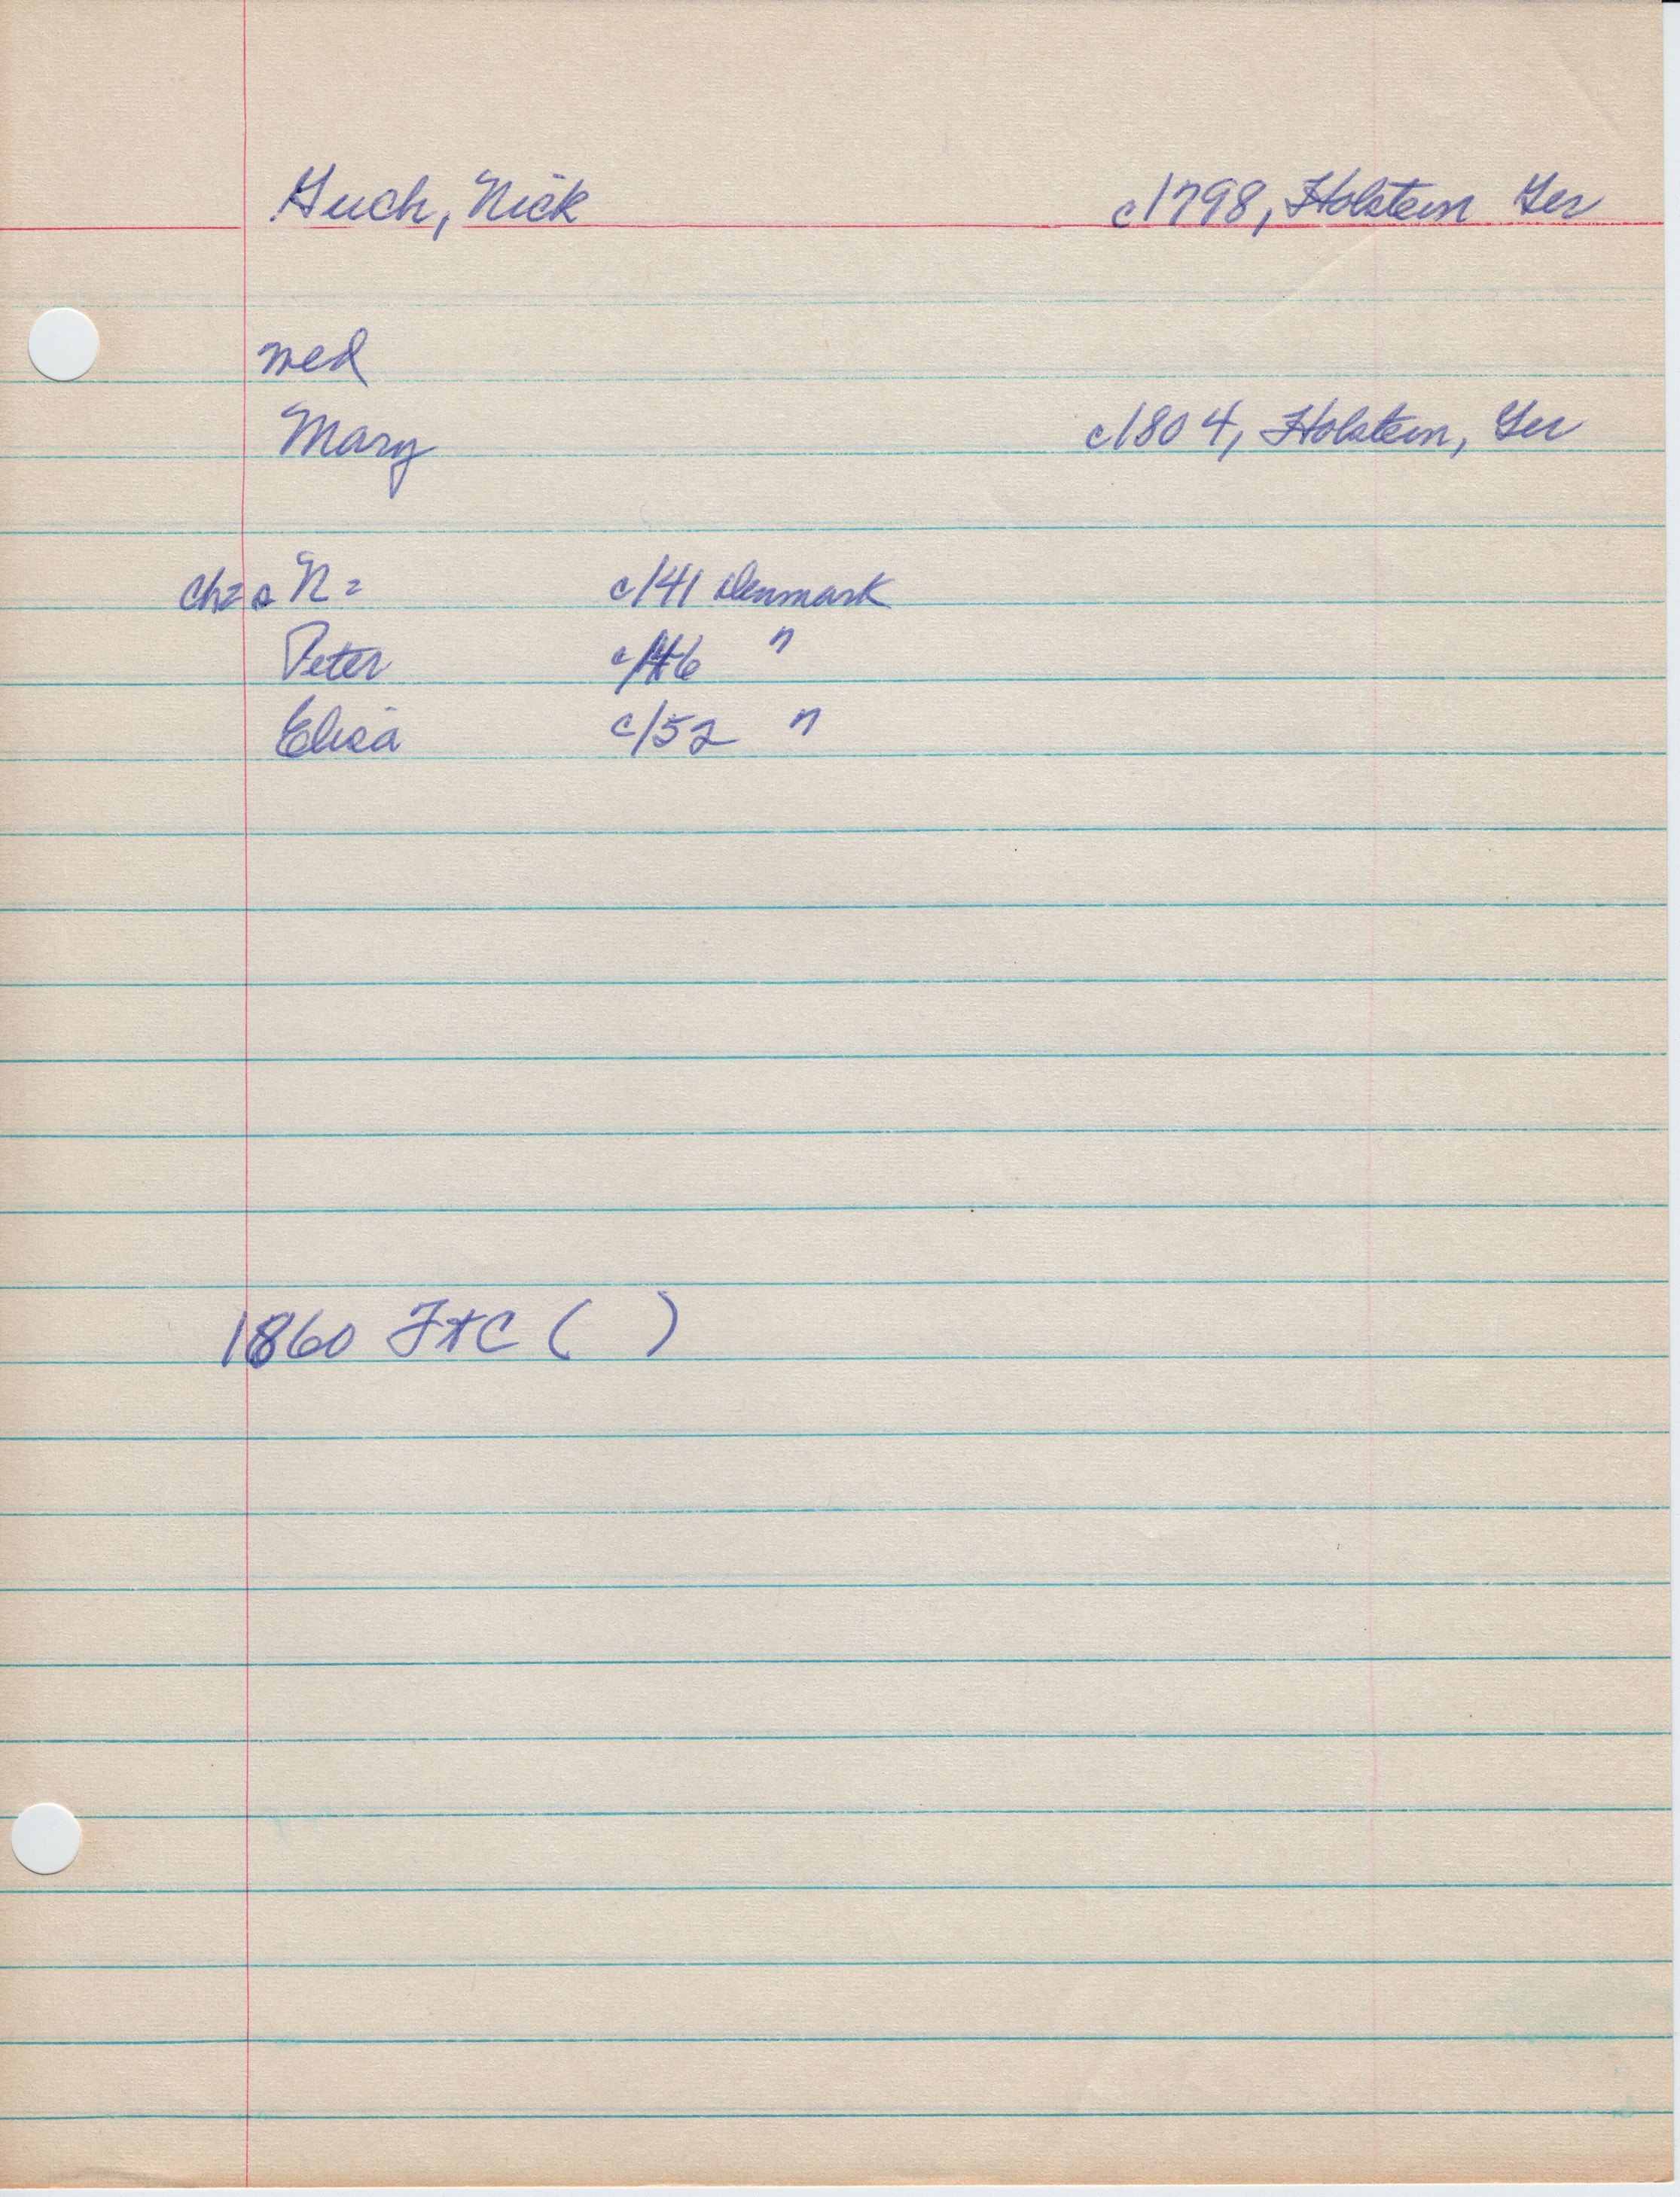 Guch, Nick c1798, Holstein Ger
med
Mary c1804, Holstein, Ger
ch= N= c/41 Denmark
Peter c/46 "
Elisa c/52 "
1860 F+C ( )